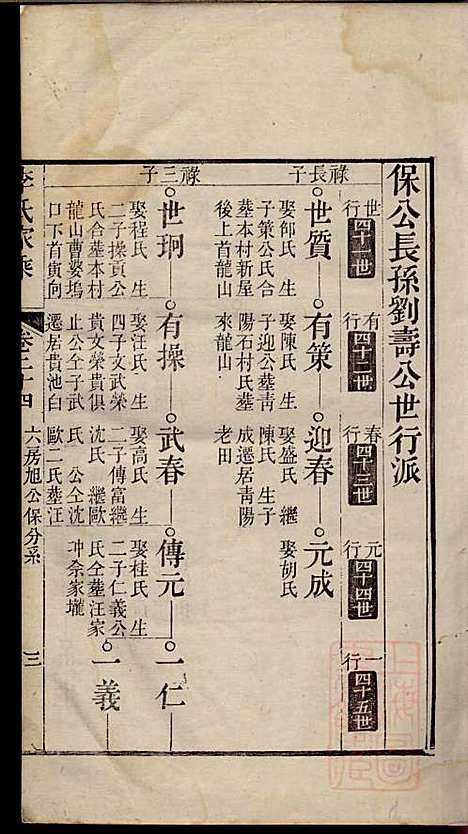 保公長孫劉壽公世行派
世行 四十一世
有行 四十二世
春行 四十三世
元行 四十四世
一行 四十五世
祿長子
世質
娶邰氏 生
子策公氏合
塟本村新屋
後上首龍山
有策
娶陳氏 生
子迎公塟青
陽石村氏塟
來龍山
迎春
娶盛氏 繼
陳氏 生子
成遷居青陽
老田
元成
娶胡氏
祿三子
世珂
娶程氏 生
二子操貢公
氏合塟本村
龍山曹婆塢
口下首寅向
有操
娶汪氏 生
四子文武榮
貴文榮貴俱
止公仝子武
遷居貴池白
武春
娶高氏 生
二子傳富繼
沈氏 繼歐
氏 公仝沈
歐二氏塟汪
六房旭公保分系
傳元
娶桂氏 生
二子仁義公
氏仝塟汪家
冲佘家壠
一仁
一義
李氏家乘
卷二十四
三